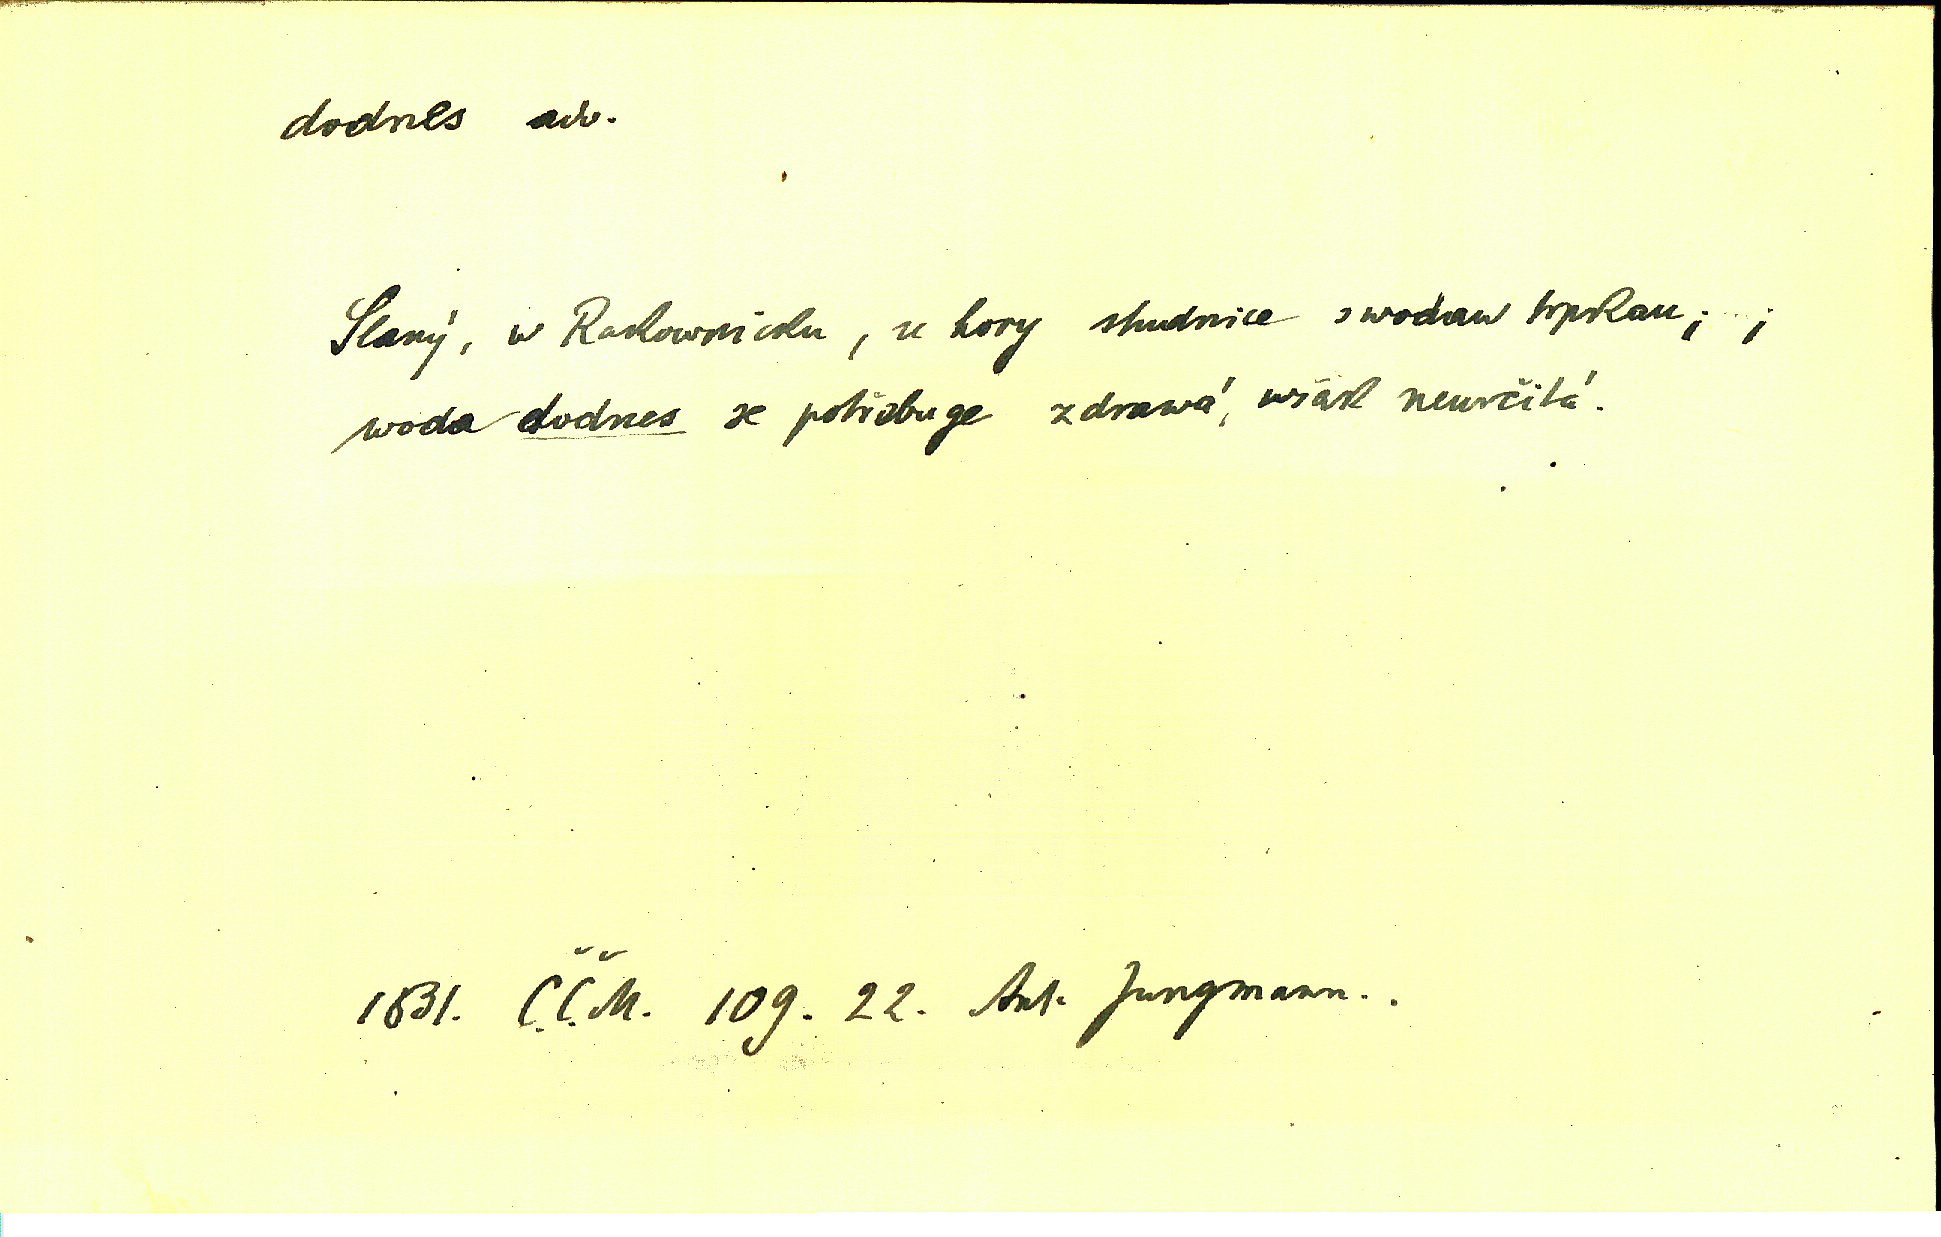 dodnes adv.
Slaný, w Rakownicku, u hory studnice s wodau trpkau; ;
woda dodnes se potřebuge zdrawá, wšak neurčitá.
1831. Č.Č.M. 109. 22. Ant. Jungmann..